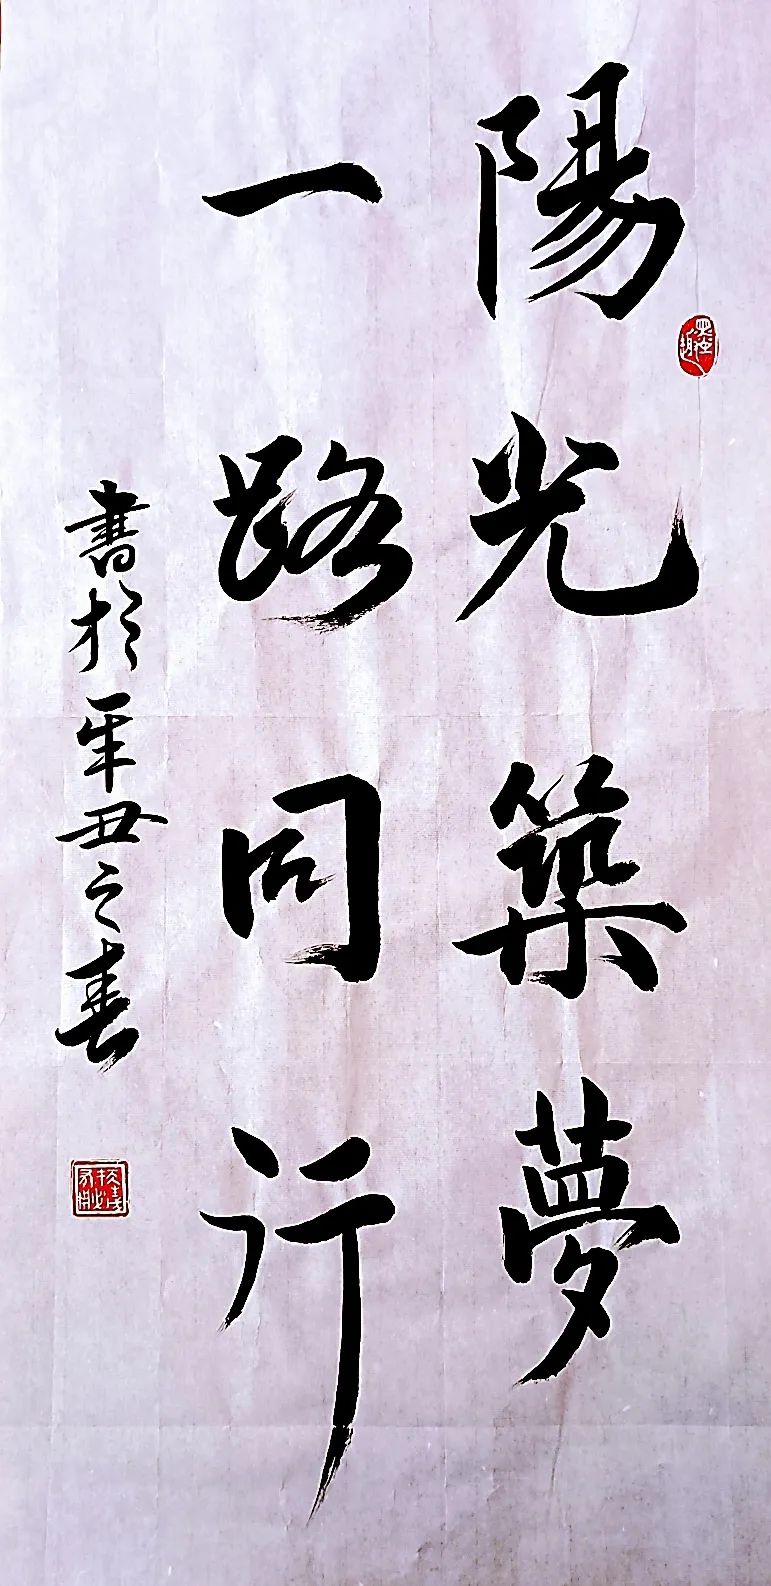 陽光築夢
一路同行
書於辛丑之春